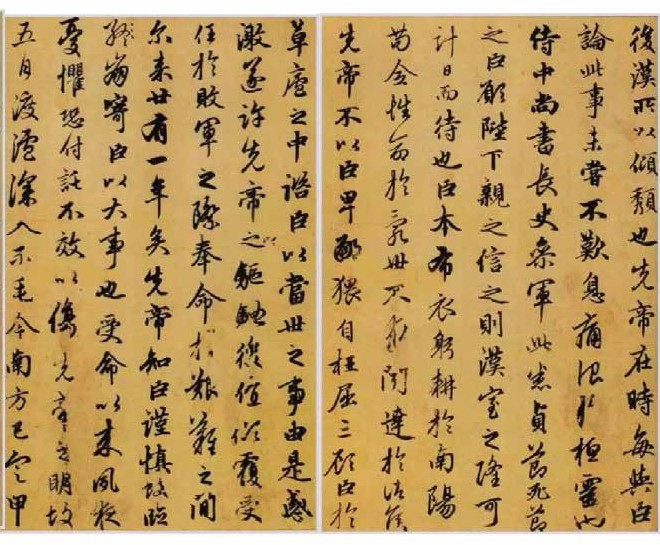 後漢所以傾頹也先帝在時每與臣
論此事未嘗不歎息痛恨於桓靈也
侍中尚書長史參軍此悉貞節死節
之臣願陛下親之信之則漢室之隆可
計日而待也臣本布衣躬耕於南陽
苟全性命於亂世不求聞達於諸侯
先帝不以臣卑鄙猥自枉屈三顧臣於
草廬之中諮臣以當世之事由是感
激遂許先帝之驅馳後值傾覆受
任於敗軍之際奉命於艱難之間
尔来廿有一年矣先帝知臣謹慎故臨
終崩寄臣以大事也受命以来夙夜
憂懼恐付託不效以傷先帝之明故
五月渡瀘深入不毛今南方已定甲